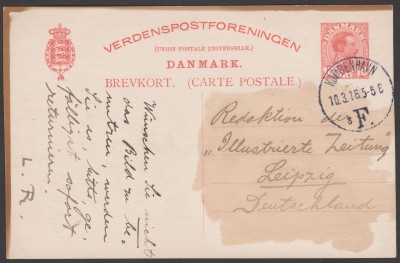 VERDENSPOSTFORENINGEN
(UNION POSTALE UNIVERSELLE.)
DANMARK.
BREVKORT. (CARTE POSTALE.)
DANMARK
KJØBENHAVN
10.3.16.5-6 E
F.
Redaktion der
„Illustrierte Zeitung"
Leipzig
Deutschland
Wünschen Sie nicht
das Bild zu be-
nutzen, werden
Sie es, bitte, ge-
fälligst sofort
returnieren.
L. R.